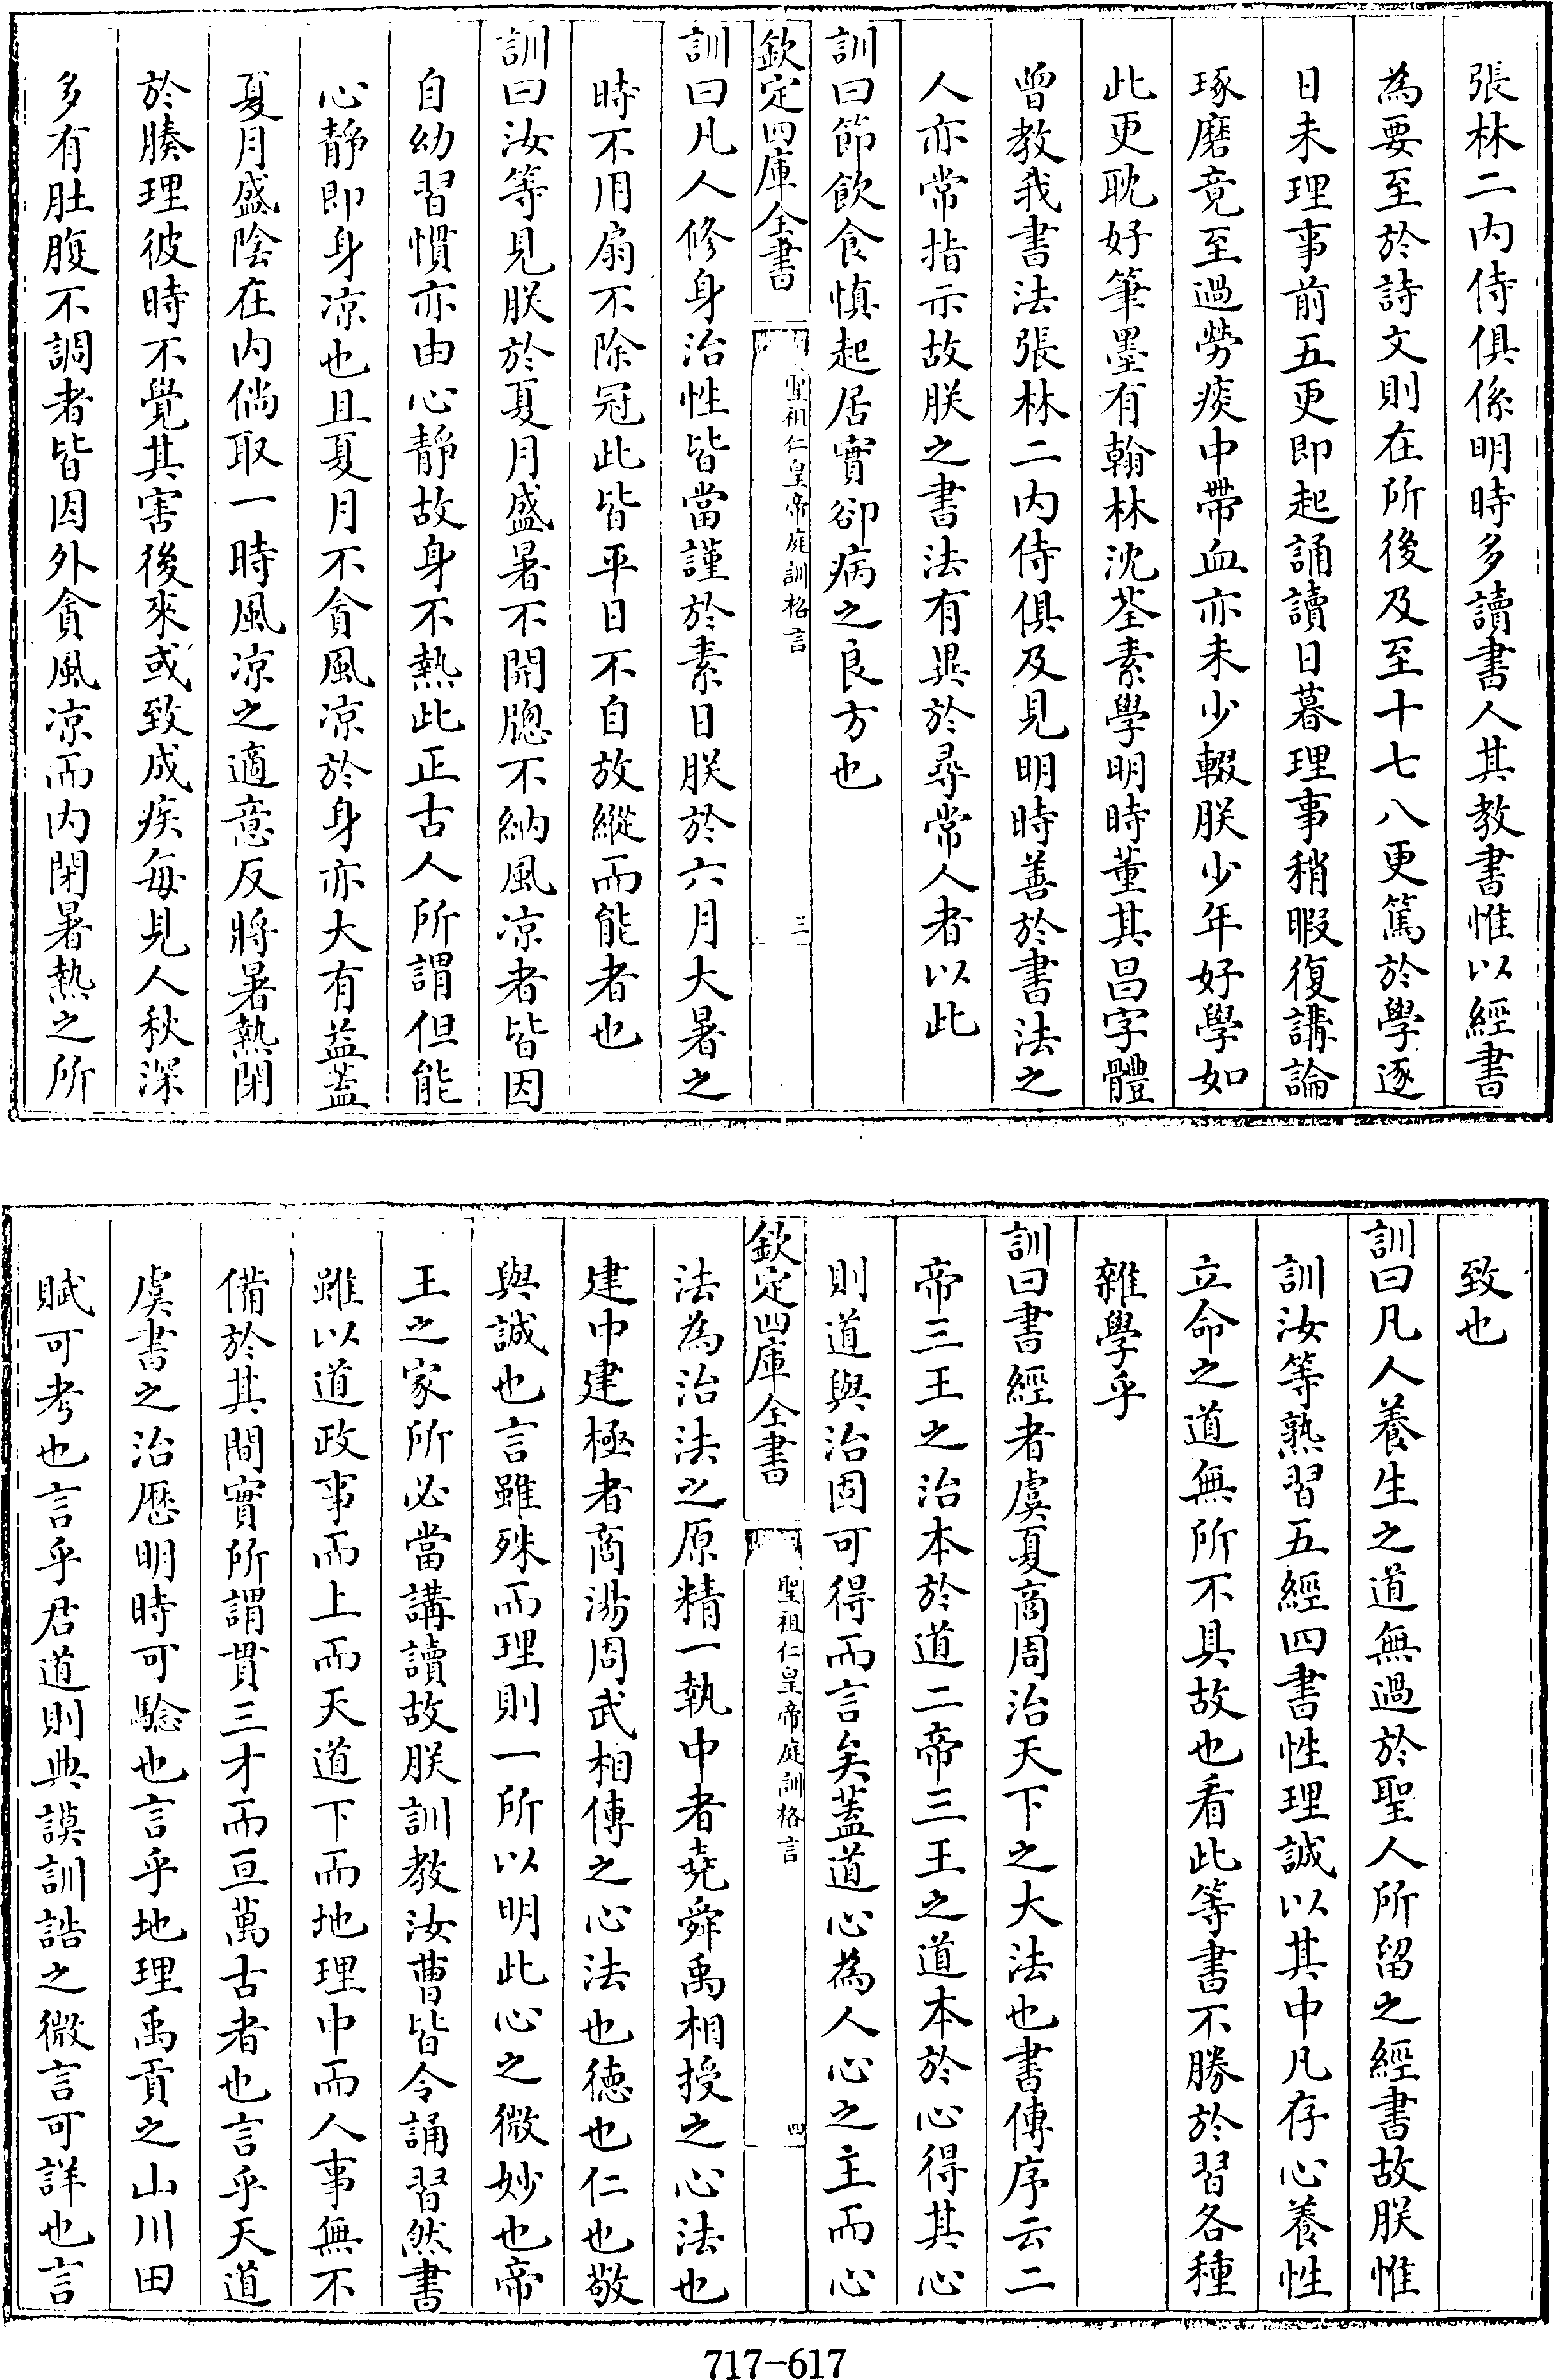 張林二内侍俱係明時多讀書人其教書惟以經書
為要至於詩文則在所後及至十七八更篤於學逐
日未理事前五更即起誦讀日暮理事稍暇復講論
琢磨竟至過勞痰中帶血亦未少輟朕少年好學如
此更耽好筆墨有翰林沈荃素學明時董其昌字體
曽教我書法張林二内侍俱及見明時善於書法之
人亦常指示故朕之書法有異於尋常人者以此
訓曰節飲食慎起居實卻病之良方也
欽定四庫全書
聖祖仁皇帝庭訓格言
三
訓曰凡人修身治性皆當謹於素日朕於六月大暑之
時不用扇不除冠此皆平日不自放縱而能者也
訓曰汝等見朕於夏月盛暑不開牕不納風凉者皆因
自幼習慣亦由心靜故身不熱此正古人所謂但能
心靜即身凉也且夏月不貪風凉於身亦大有益蓋
夏月盛陰在内倘取一時風凉之適意反將暑熱閉
於腠理彼時不覺其害後來或致成疾每見人秋深
多有肚腹不調者皆因外貪風凉而内閉暑熱之所
致也
訓曰凡人養生之道無過於聖人所留之經書故朕惟
訓汝等熟習五經四書性理誠以其中凡存心養性
立命之道無所不具故也看此等書不勝於習各種
雜學乎
訓曰書經者虞夏商周治天下之大法也書傳序云二
帝三王之治本於道二帝三王之道本於心得其心
則道與治固可得而言矣蓋道心為人心之主而心
欽定四庫全書
聖祖仁皇帝庭訓格言
四
法為治法之原精一執中者堯舜禹相授之心法也
建中建極者商湯周武相傳之心法也德也仁也敬
與誠也言雖殊而理則一所以明此心之微妙也帝
王之家所必當講讀故朕訓教汝曹皆令誦習然書
雖以道政事而上而天道下而地理中而人事無不
備於其間實所謂貫三才而亘萬古者也言乎天道
虞書之治厯明時可驗也言乎地理禹貢之山川田
賦可考也言乎君道則典謨訓誥之微言可詳也言
717-617